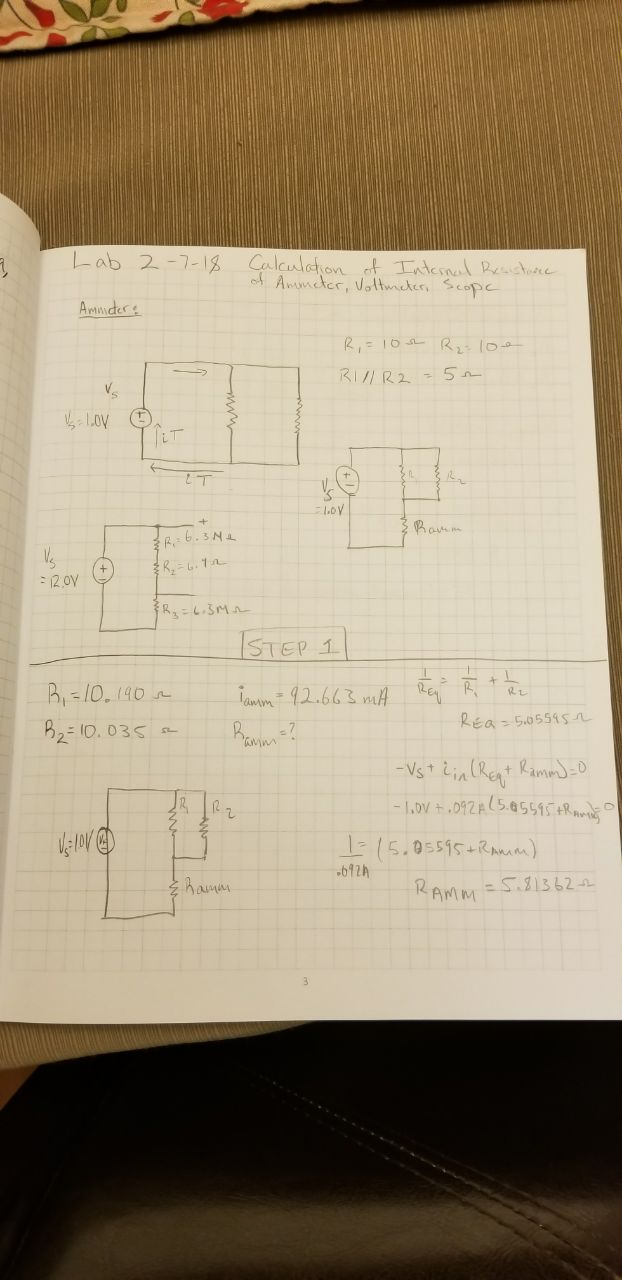 Lab 2-7-18 Calculation of Internal Resistance
of Ammeter, Voltmeter, Scope
Ammeter:
R1 = 10 Ω R2 = 10 Ω
R1 // R2 = 5 Ω
Vs
Vs = 1.0V
iT
iT
R1
R2
Vs
= 1.0V
Ramm
+
R1 = 6.3 MΩ
Vs
= 12.0V
R3 = 6.3 MΩ
STEP 1
R1 = 10.190 Ω
iamm = 92.663 mA
1/REq = 1/R1 + 1/R2
R2 = 10.035 Ω
Ramm = ?
REQ = 5.05595 Ω
-Vs + iin (REq + Ramm) = 0
-1.0V + .092A (5.05595 + RAmm) = 0
R1
R2
Vs = 1.0V
Ramm
1/.092A = (5.05595 + RAmm)
RAMM = 5.81362 Ω
3